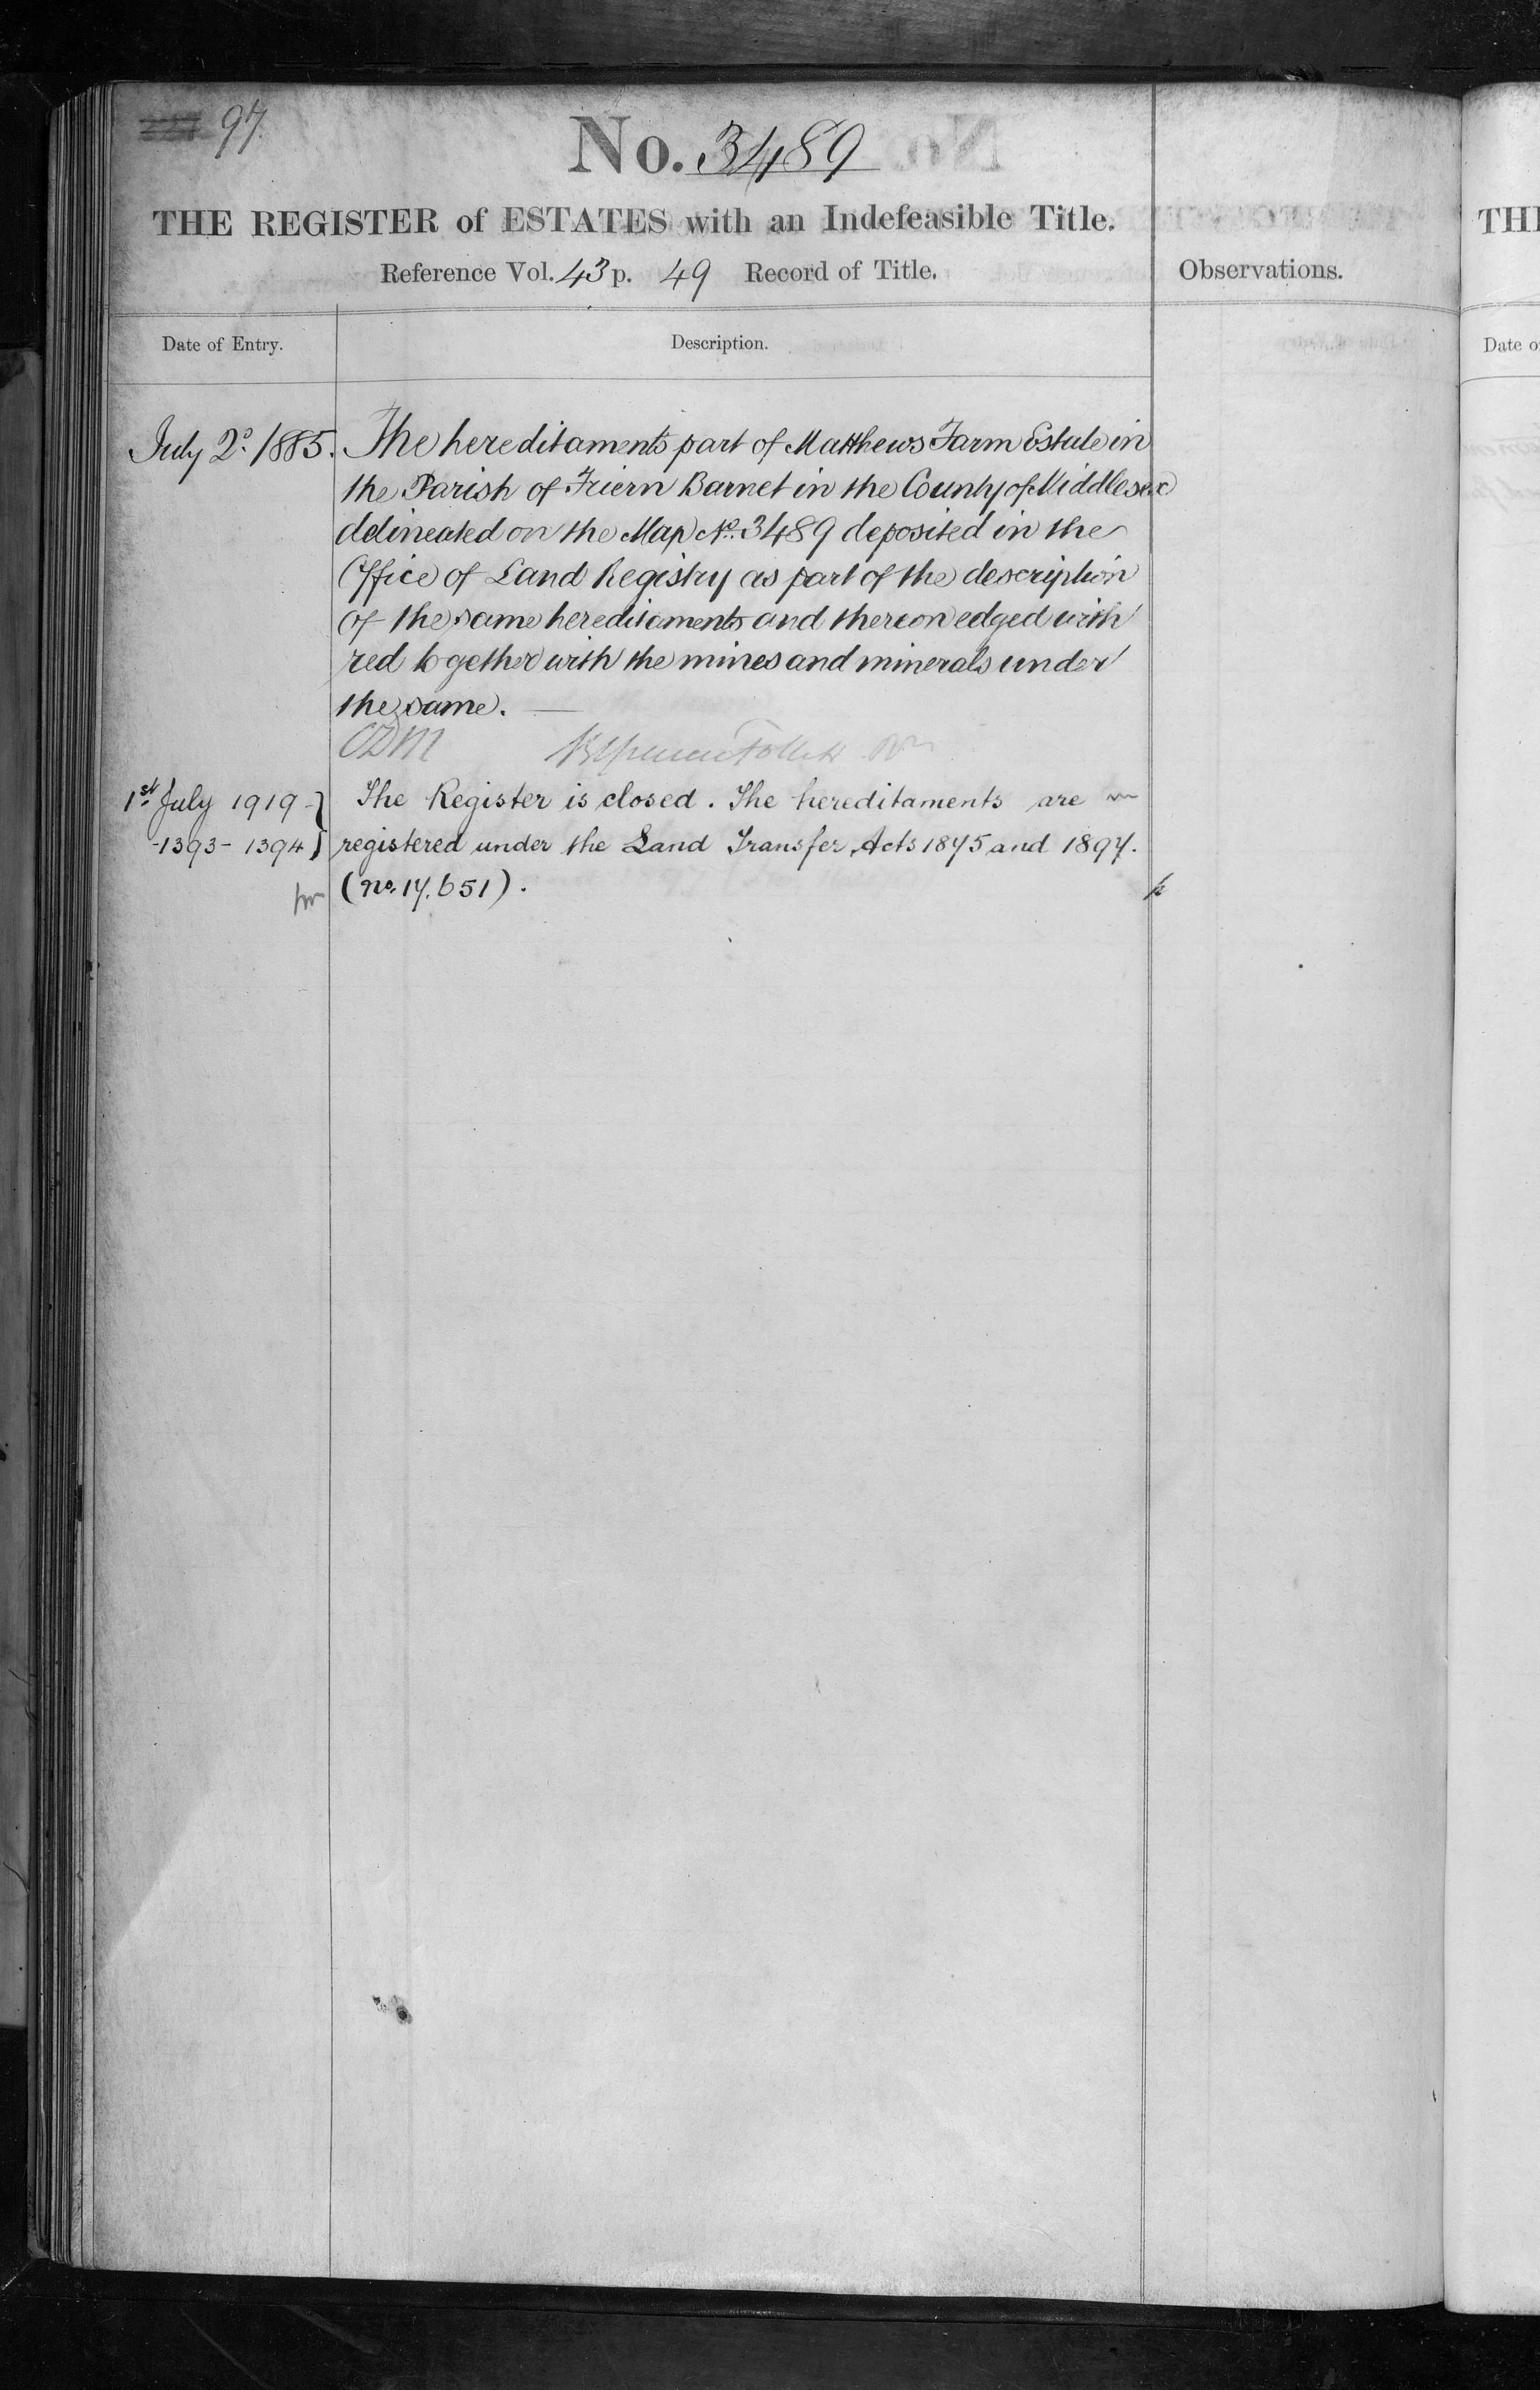 97.
No. 3489
THE REGISTER of ESTATES with an Indefeasible Title.
Reference Vol. 43 p. 49 Record of Title.
Observations.
Date of Entry.
Description.
July 2d. 1885.
The hereditaments part of Matthews Farm Estate in
the Parish of Friern Barnet in the County of Middlesex
delineated on the Map No. 3489 deposited in the
Office of Land Registry as part of the description
of the same hereditaments and thereon edged with
red together with the mines and minerals under
the same.
1st July 1919
1393 - 1394
The Register is closed. The hereditaments are
registered under the Land Transfer Acts 1875 and 1897.
(No. 17.651).
TH
Date o